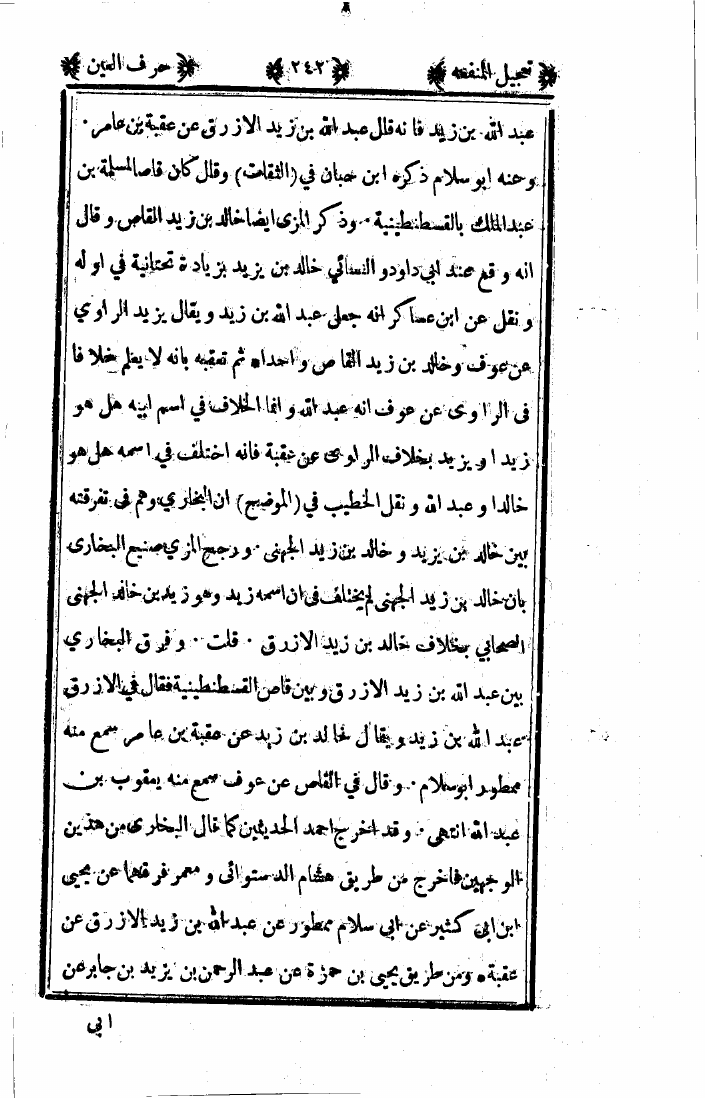 تعجيل المنفعة ﴿٢٤٢﴾ حرف العين
عبد الله بن زيد فانه قال عبد الله بن زيد الازرق عن عقبة بن عامر ٠
وعنه ابو سلام ذكره ابن حبان في (الثقات) وقال كان قاصا لمسلمة بن
عبد الملك بالقسطنطينية ٠ وذكر المزى ايضا خالد بن زيد القاص وقال
انه وقع عند ابي داود والنسائي خالد بن يزيد بزيادة تحتانية في اوله
ونقل عن ابن عساكر انه جعل عبد الله بن زيد ويقال يزيد الراوي
عن عوف وخالد بن زيد القاص واحدا٠ ثم تعقبه بانه لا يعلم خلافا
فى الراوى عن عوف انه عبد الله وانما الخلاف في اسم ابيه هل هو
زيد او يزيد بخلاف الراوى عن عقبة فانه اختلف في اسمه هل هو
خالد او عبد الله ونقل الخطيب في (الموضح) ان البخاري وهم فى تفرقته
بين خالد بن يزيد وخالد بن زيد الجهنى ٠ ورجح المزي صنيع البخارى
بان خالد بن زيد الجهنى لم يختلف فى ان اسمه زيد وهو زيد بن خالد الجهنى
الصحابي بخلاف خالد بن زيد الازرق ٠ قلت ٠ وفرق البخاري
بين عبد الله بن زيد الازرق وبين قاص القسطنطينية فقال في الازرق
عبد الله بن زيد ويقال خالد بن زيد عن عقبة بن عامر سمع منه
ممطور ابو سلام ٠ وقال في القاص عن عوف سمع منه يعقوب بن
عبد الله انتهى ٠ وقد اخرج احمد الحديثين كما قال البخارى من هذين
الوجهين فاخرج من طريق هشام الدستوائى ومعمر فرقهما عن يحيى
ابن ابي كثير عن ابي سلام ممطور عن عبد الله بن زيد الازرق عن
عقبة ٠ ومن طريق يحيى بن حمزة عن عبد الرحمن بن يزيد بن جابر عن
ابي